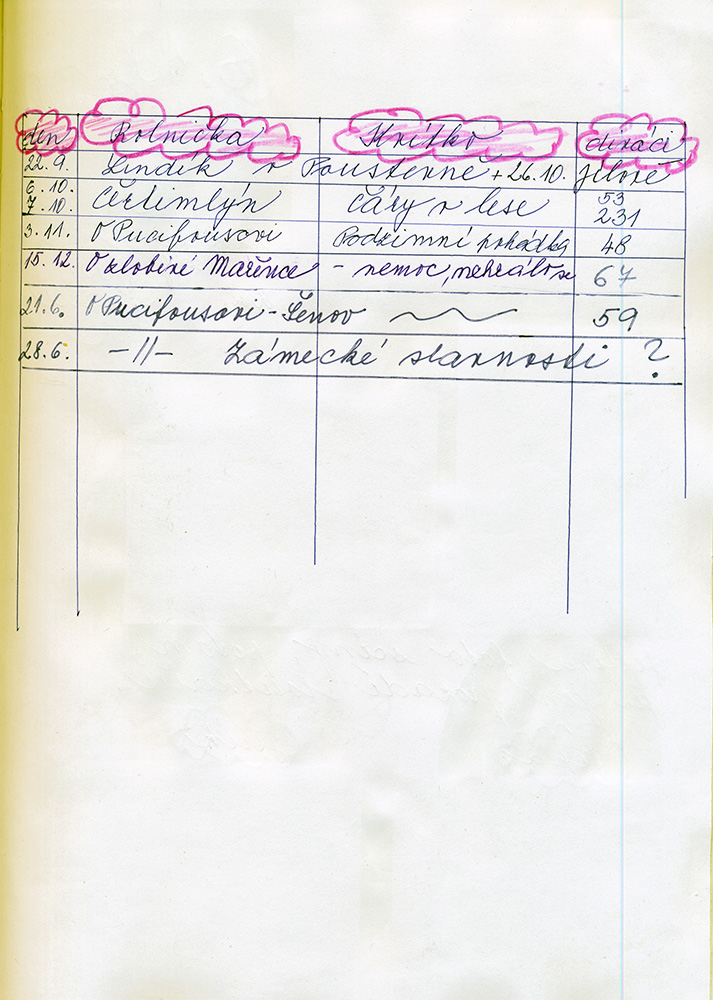 den Rolnička Krítko diváci
22.9. Lindík v Pousterně + 26.10. Jílové
6.10. 53
7.10. Čertimlýn Čáry v lese 231
3.11. O Pucifousovi Podzimní pohádka 48
15.12. O zlobivé Mařence - nemoc, nehrálo se 67
21.6. O Pucifousovi - Šenov 59
28.6. -||- Zámecké slavnosti ?